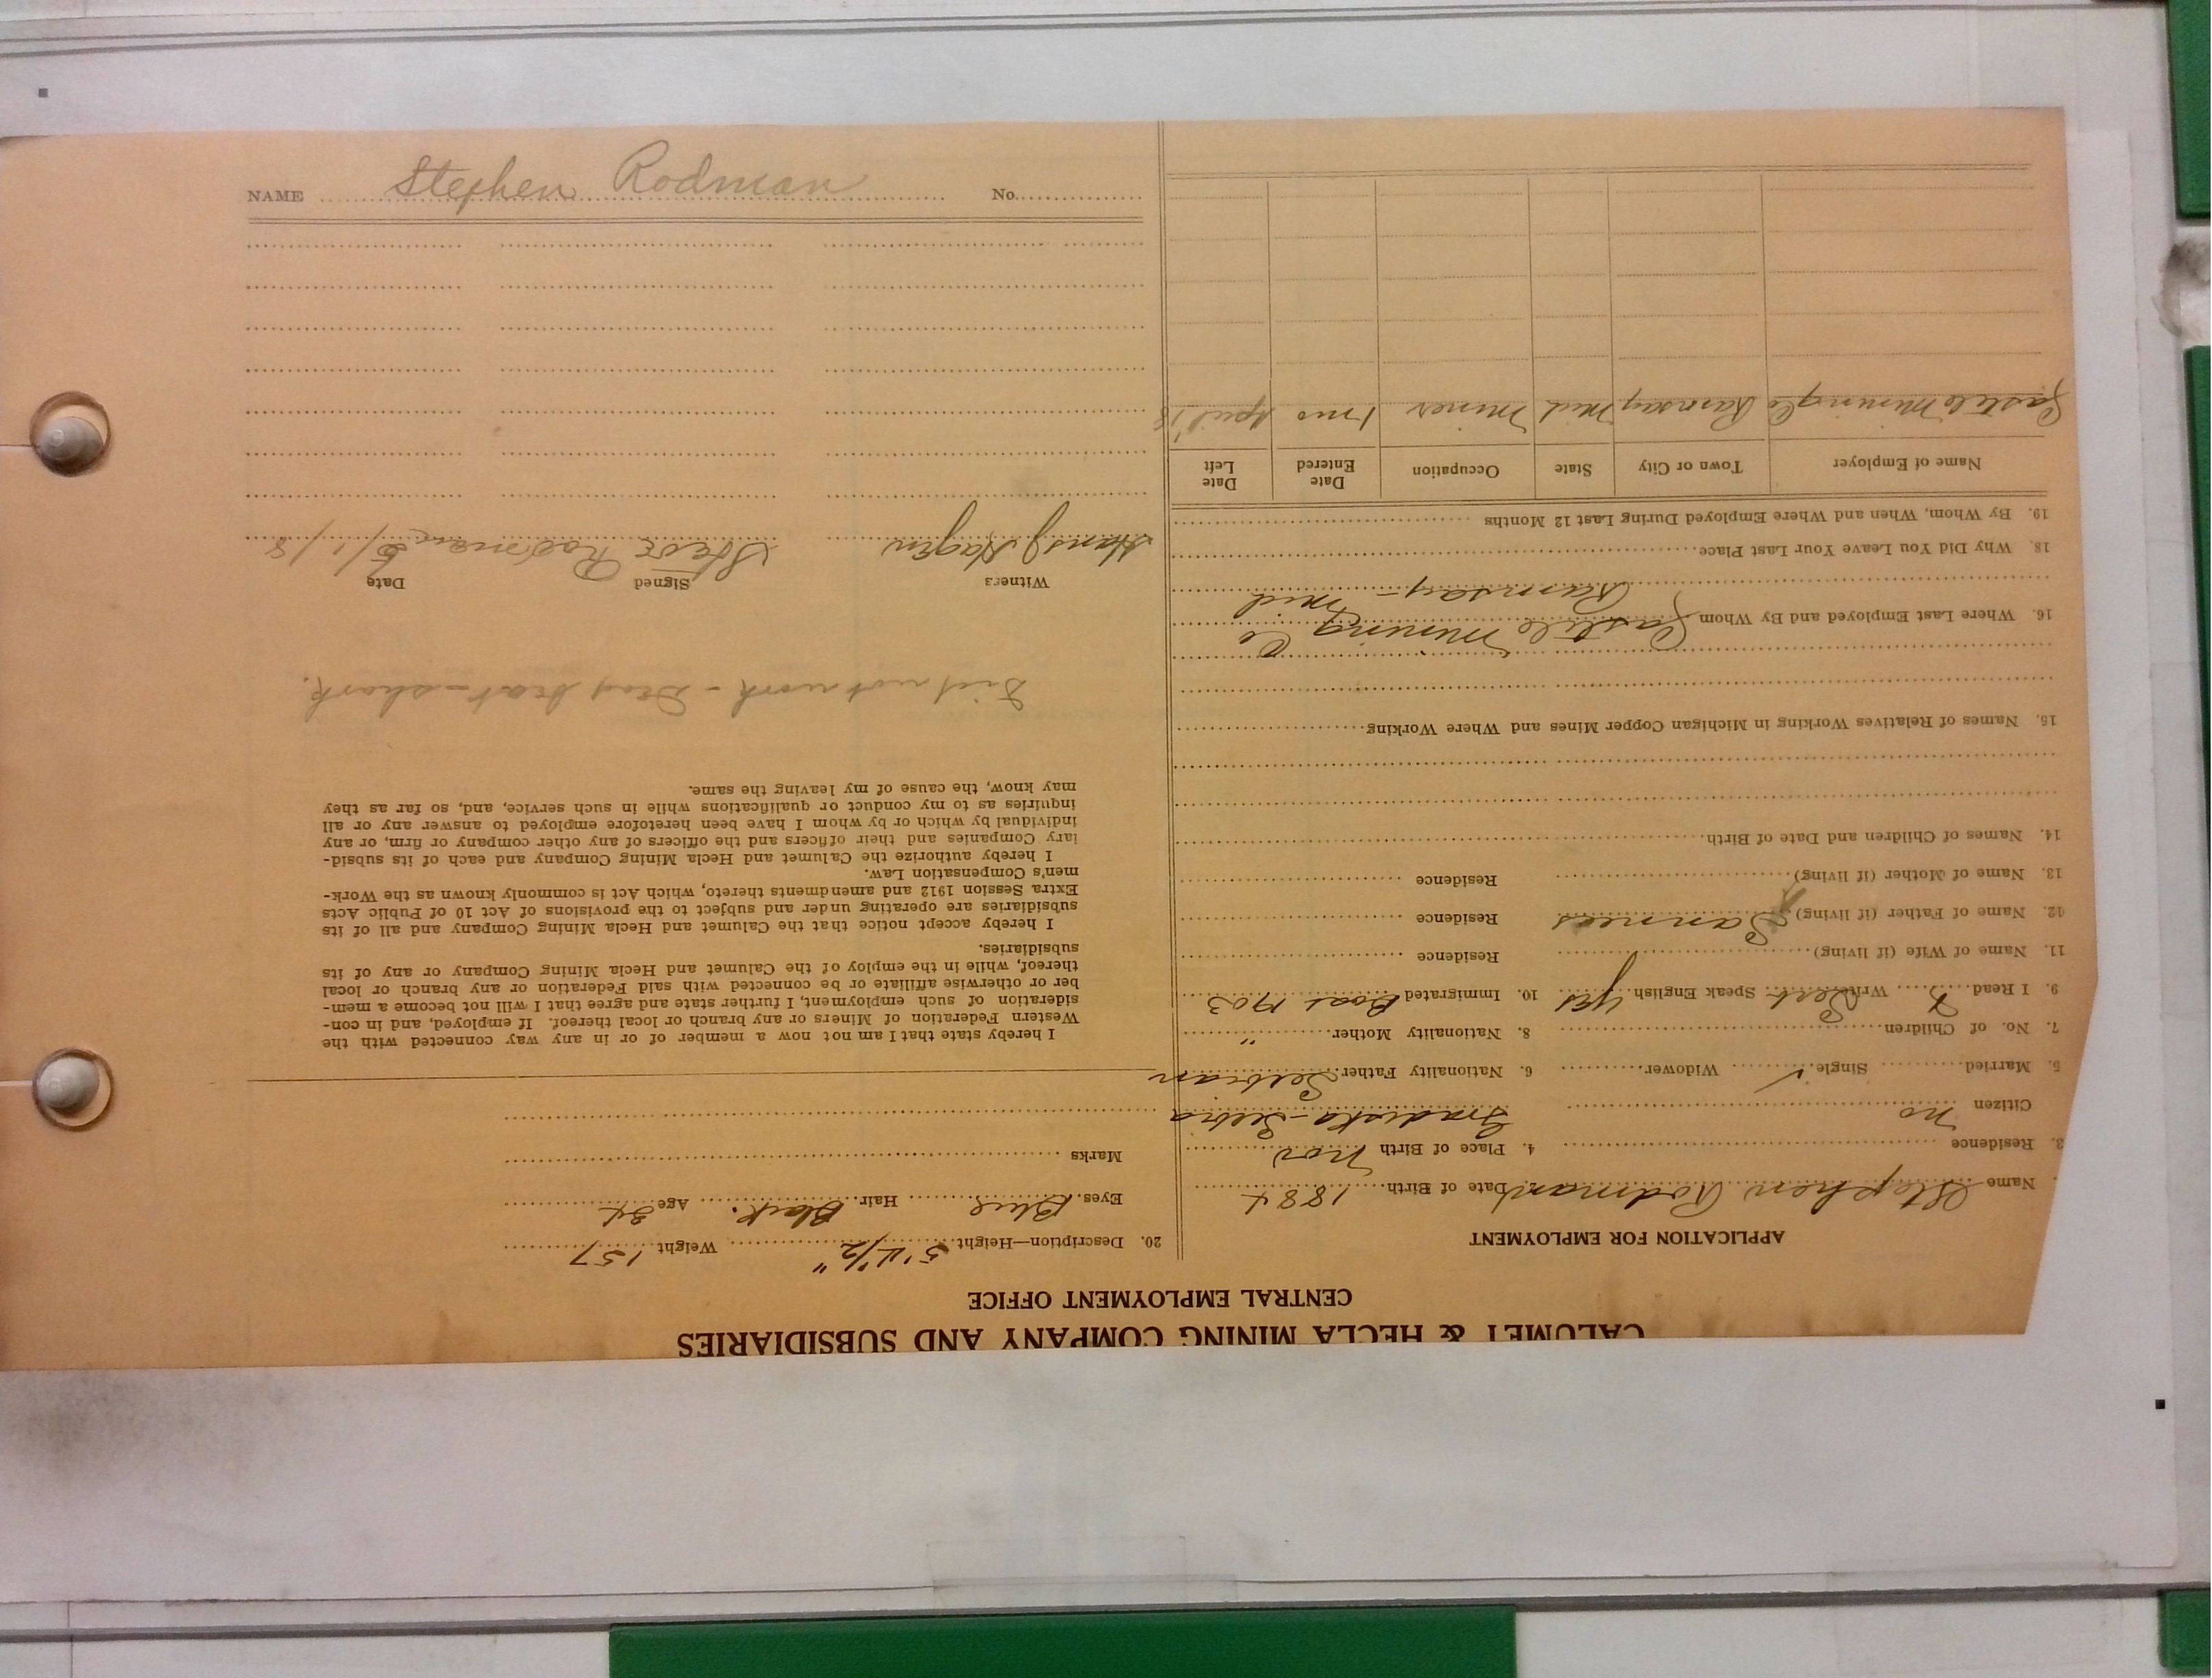 CALUMET & HECLA MINING COMPANY AND SUBSIDIARIES
CENTRAL EMPLOYMENT OFFICE
APPLICATION FOR EMPLOYMENT
Name Stephen Rodman Date of Birth 1884
3. Residence 4. Place of Birth Nov
Citizen no Gradiska-Serbia
5. Married Single ✓ Widower 6. Nationality Father Serbian
7. No. of Children 8. Nationality Mother "
9. I Read Write Speak English yes 10. Immigrated 1903
11. Name of Wife (if living) Residence
12. Name of Father (if living) Residence
13. Name of Mother (if living) Residence
14. Names of Children and Date of Birth
15. Names of Relatives Working in Michigan Copper Mines and Where Working
16. Where Last Employed and By Whom Castile Mining Co
Ramsay - Mich
18. Why Did You Leave Your Last Place
19. By Whom, When and Where Employed During Last 12 Months
Name of Employer Town or City State Occupation Date Entered Date Left
Castile Mining Co Ramsay Mich Miner 1 mo April '18
20. Description—Height 5' 4 1/2" Weight 157
Eyes Blue Hair Black Age 34
Marks
I hereby state that I am not now a member of or in any way connected with the
Western Federation of Miners or any branch or local thereof. If employed, and in con-
sideration of such employment, I further state and agree that I will not become a mem-
ber or otherwise affiliate or be connected with said Federation or any branch or local
thereof, while in the employ of the Calumet and Hecla Mining Company or any of its
subsidiaries.
I hereby accept notice that the Calumet and Hecla Mining Company and all of its
subsidiaries are operating under and subject to the provisions of Act 10 of Public Acts
Extra Session 1912 and amendments thereto, which Act is commonly known as the Work-
men's Compensation Law.
I hereby authorize the Calumet and Hecla Mining Company and each of its subsid-
iary Companies and their officers and the officers of any other company or firm, or any
individual by which or by whom I have been heretofore employed to answer any or all
inquiries as to my conduct or qualifications while in such service, and, so far as they
may know, the cause of my leaving the same.
Did not work -
Witness Signed Date
Hans J Hagen Steve Rodman 5/1/18
NAME Stephen Rodman No.